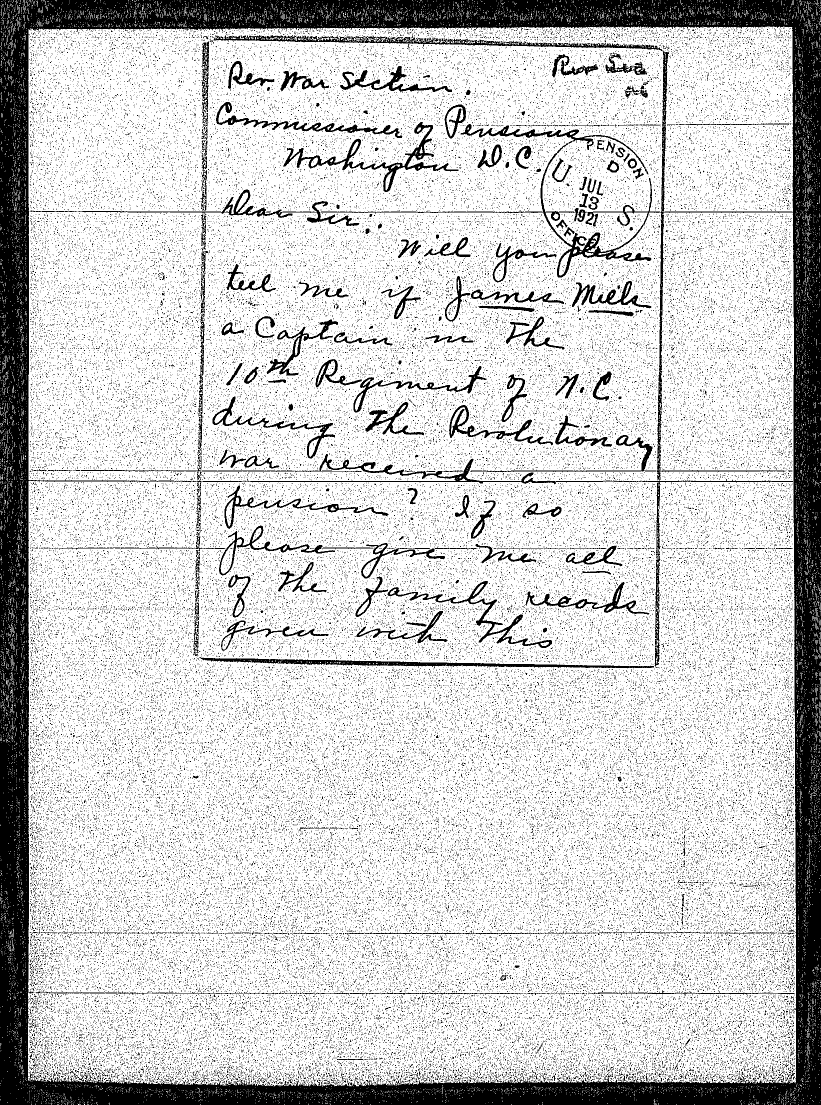 Rev. War Section.
Commissioner of Pensions
Washington D.C.
PENSION OFFICE
D
U. S.
JUL
13
1921
Dear Sir:.
Will you please
tell me if James Mills
a Captain in the
10th Regiment of N.C.
during the Revolutionary
war received a
pension? If so
please give me all
of the family records
given with this